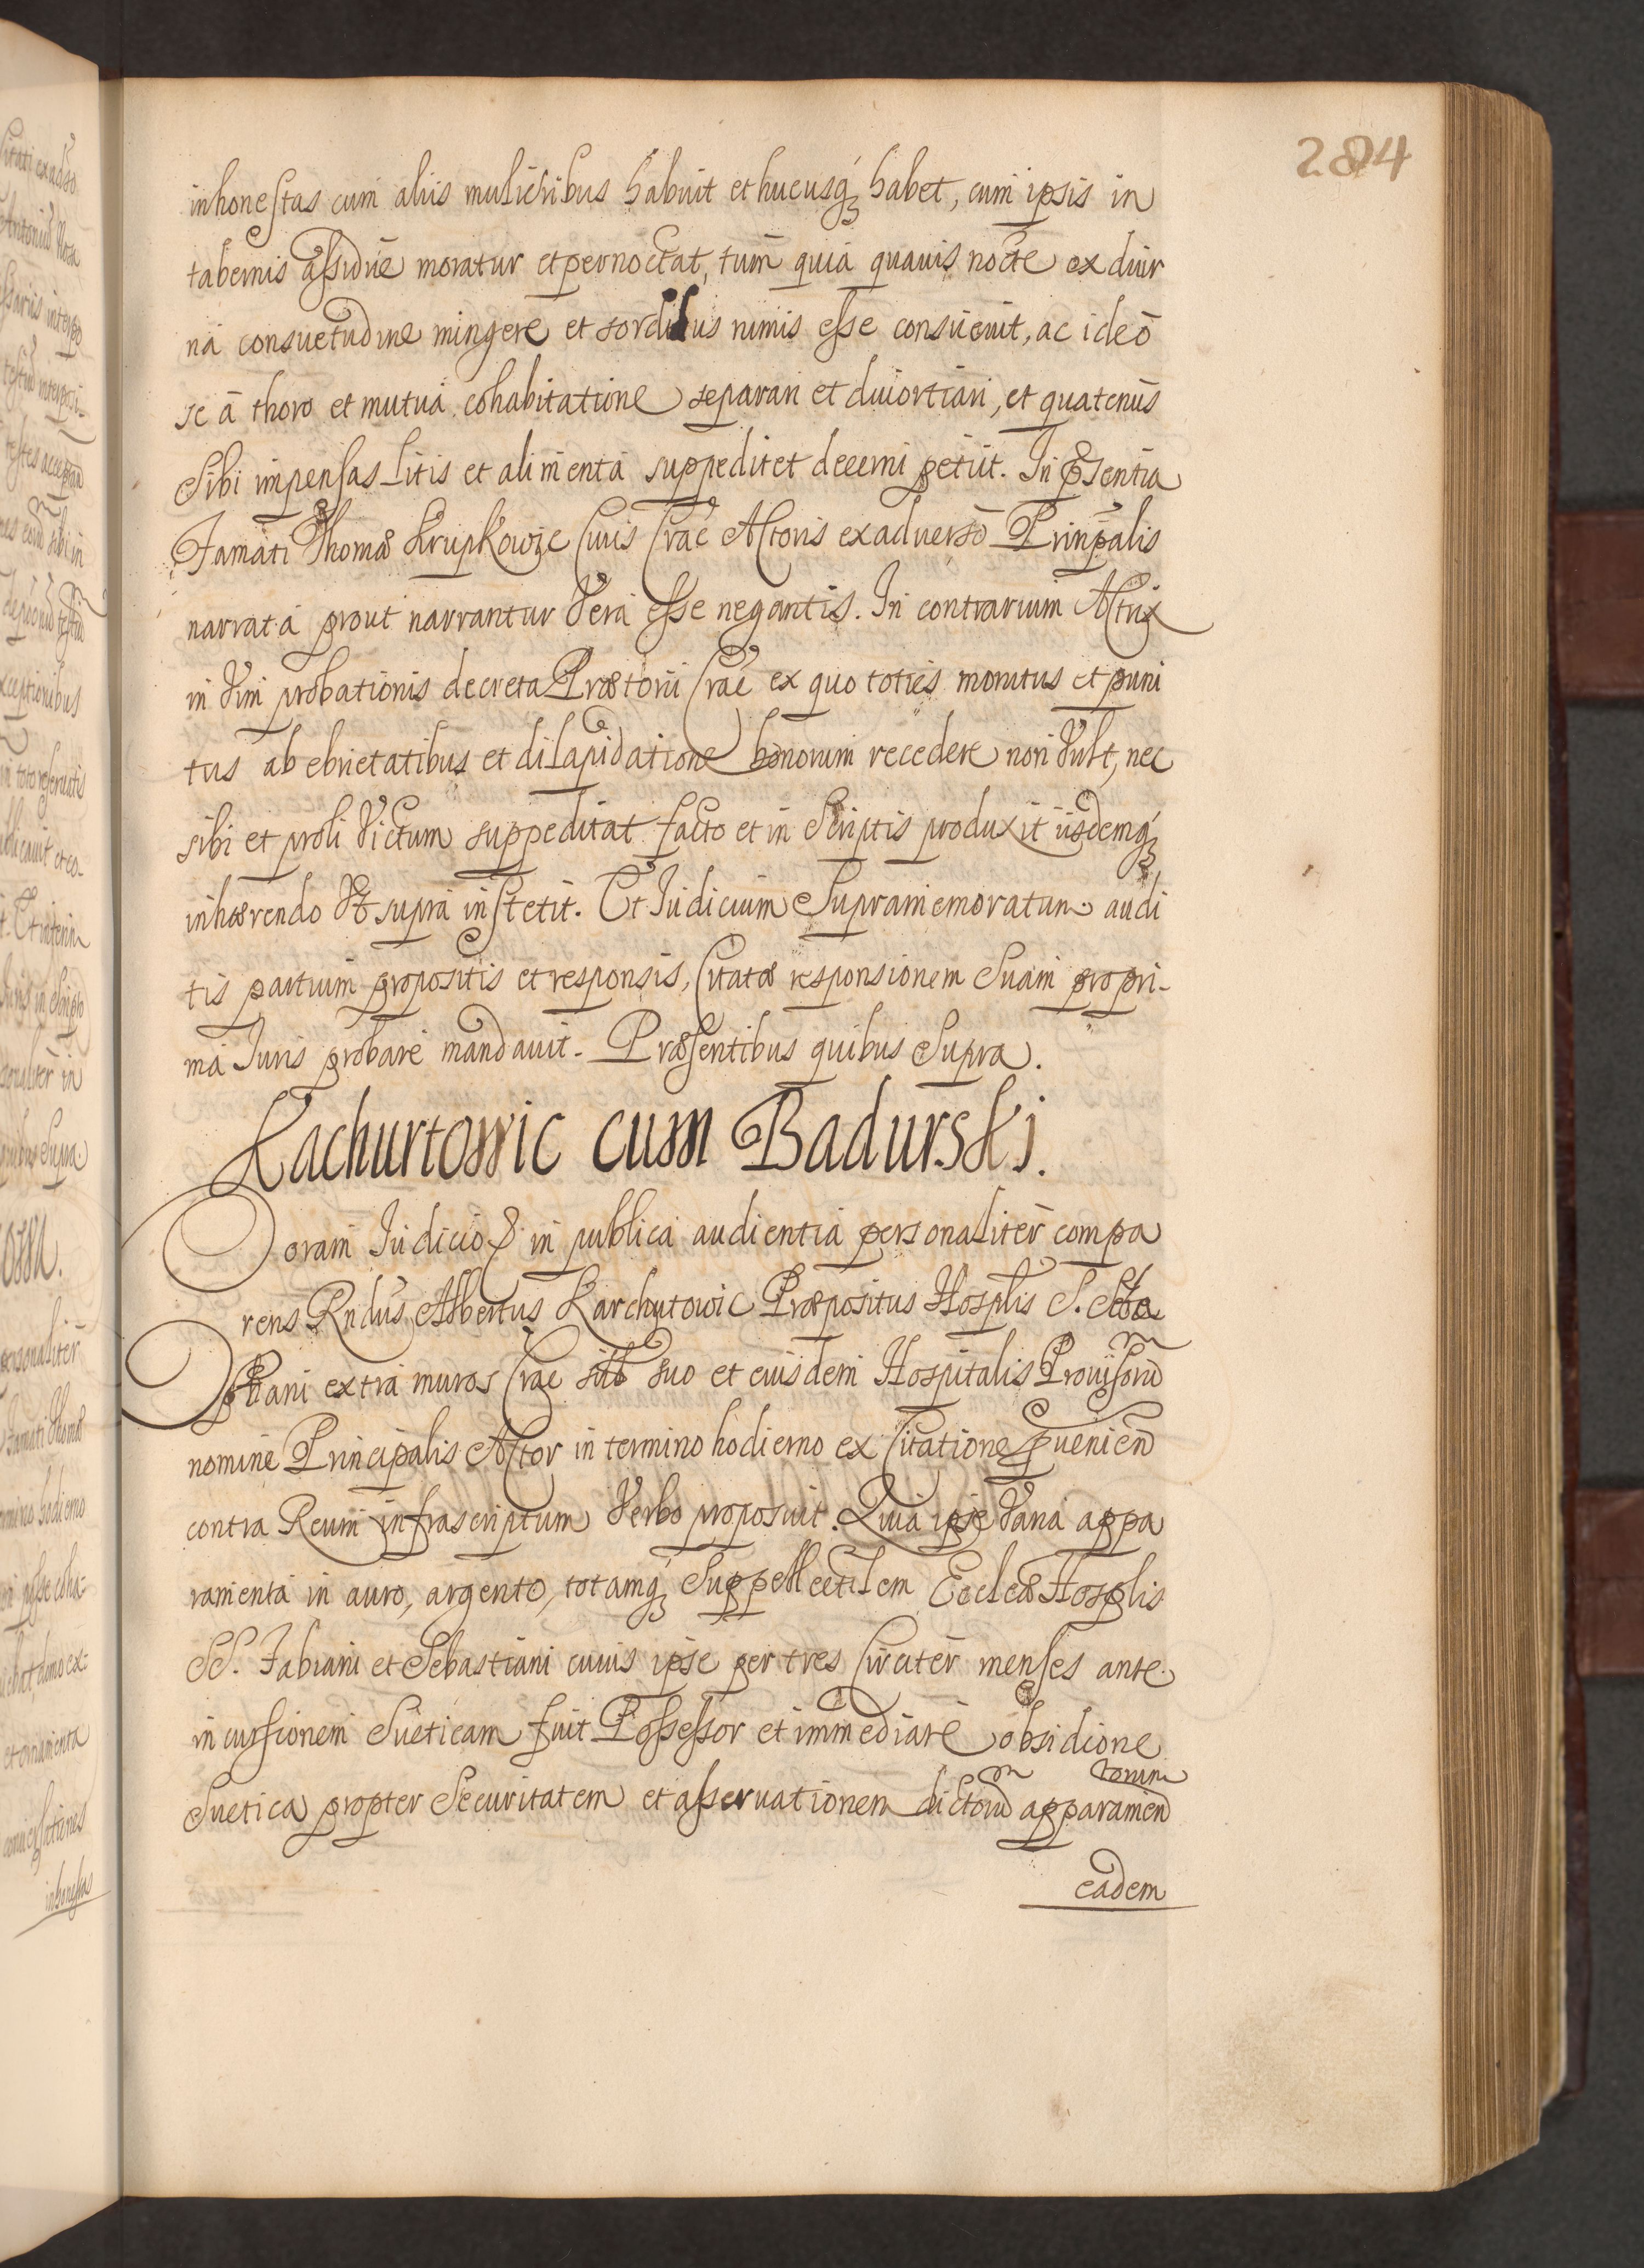 284
inhonestas cum aliis mulieribus habuit et hucusq₃ habet, cum ipsis in
tabernis assiduè moratur et pernoctat, tum quia quavis nocte ex diur
na consuetudine mingere et sordidus nimis esse consuevit, ac ideò
se à thoro et mutua cohabitatione separari et divortiari, et quatenus
Sibi impensas Litis et alimenta suppeditet decerni petiit. In Psentia
Famati Thomæ Krupkowic Civis Crac Actoris ex adverso Prinpalis
narrata prout narrantur Vera esse negantis. In contrarium Actrix
in Vim probationis decreta Prætorii Crac ex quo toties monitus et puni
tus ab ebrietatibus et dilapidatione bonorum recedere non Vult, nec
sibi et proli Victum suppeditat facto et in Scriptis produxit iisdemq₃
inhærendo Vt supra institit. Et Iudicium Supramemoratum audi
tis partium propositis et responsis, Citatæ responsionem Suam pro pri-
ma Iuris probare mandavit. Præsentibus quibus Supra.
Kachurtowic cum Badurski.
Coram Iudicio & in publica audientia personaliter compa
rens Rndus Albertus Karchutowic Præpositus Hosplis S.
extra muros Crac suo et eiusdem Hospitalis Provisorũ
nomine Principalis Actor in termino hodierno ex Citatione pvenieñ
contra Reum infrascriptum Verbo proposuit. Quia ipse Varia appa
ramenta in auro, argento, totamq₃ Suppellectilem Eccleæ Hosplis
SS. Fabiani et Sebastiani cuius ipse per tres Circiter menses ante
incursionem Sueticam fuit Possessor et immediatè obsidione
torum
Suetica propter Securitatem et asservationem dictorũ apparamen
eadem